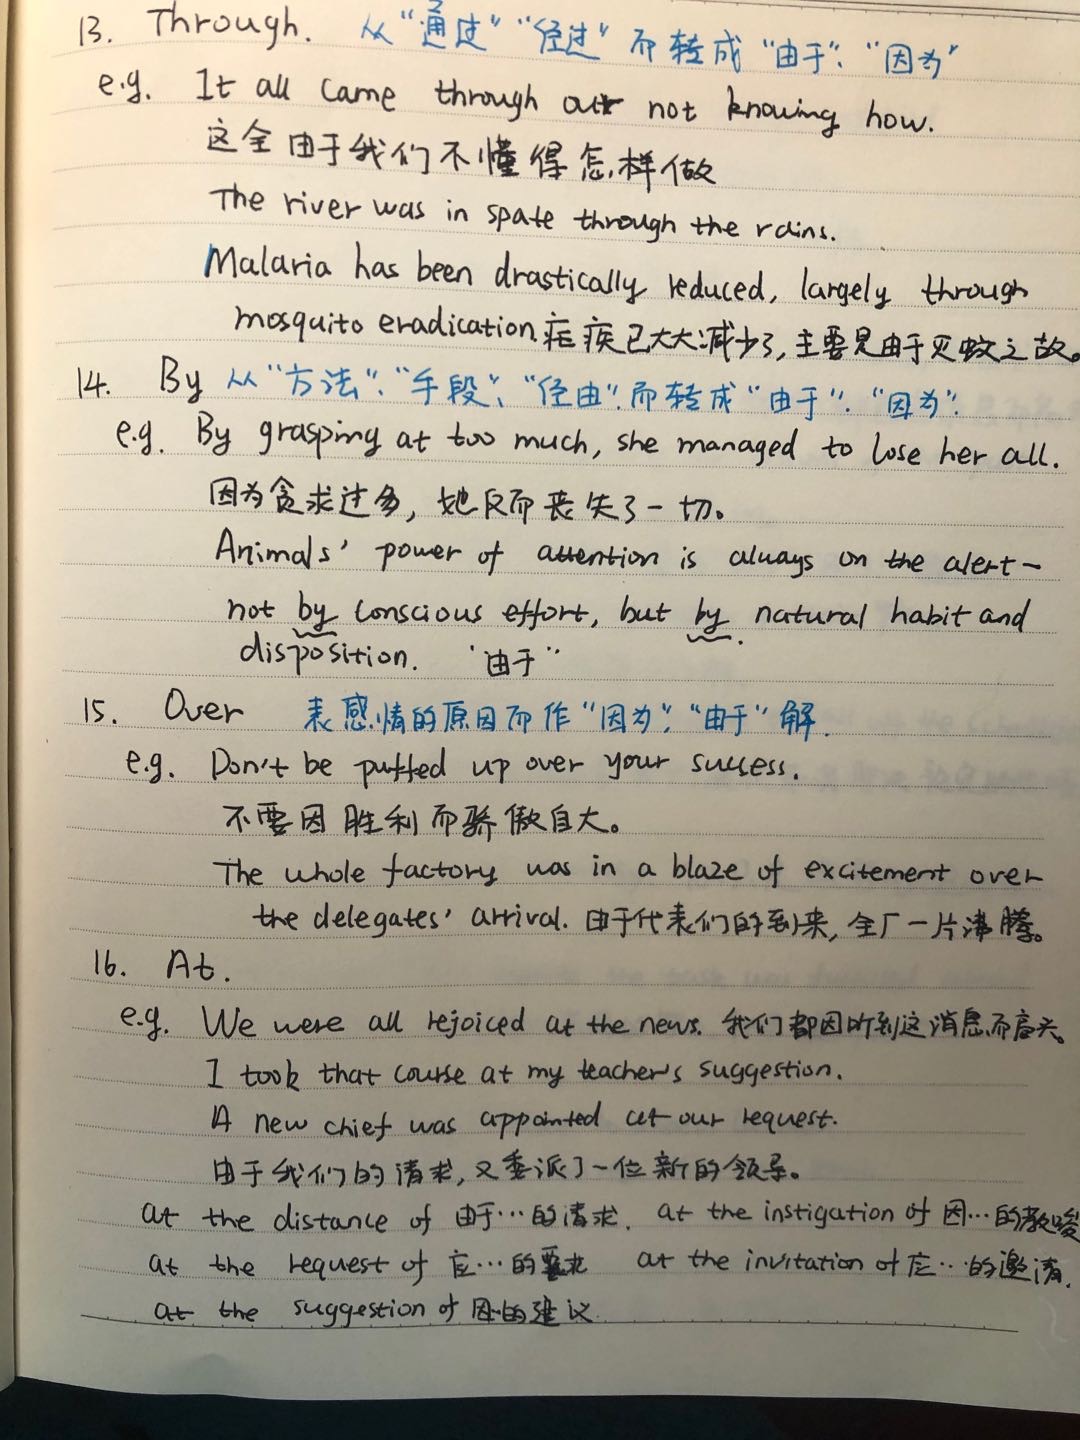 13. Through. 从“通过”“经过”而转成“由于”、“因为”
e.g. It all came through our not knowing how.
这全由于我们不懂得怎样做
The river was in spate through the rains.
Malaria has been drastically reduced, largely through
mosquito eradication. 疟疾已大大减少了,主要是由于灭蚊之故。
14. By 从“方法”、“手段”、“经由”而转成“由于”、“因为”.
e.g. By grasping at too much, she managed to lose her all.
因为贪求过多,她反而丧失了一切。
Animals' power of attention is always on the alert—
not by conscious effort, but by natural habit and
disposition. “由于”
15. Over 表感情的原因而作“因为”、“由于”解.
e.g. Don't be puffed up over your success.
不要因胜利而骄傲自大。
The whole factory was in a blaze of excitement over
the delegates' arrival. 由于代表们的到来,全厂一片沸腾。
16. At.
e.g. We were all rejoiced at the news. 我们都因听到这消息而高兴。
I took that course at my teacher's suggestion.
A new chief was appointed at our request.
由于我们的请求,又委派了一位新的领导。
at the distance of 由于…的请求. at the instigation of 因…的教唆
at the request of 应…的要求 at the invitation of 应…的邀请.
at the suggestion of 因…的建议